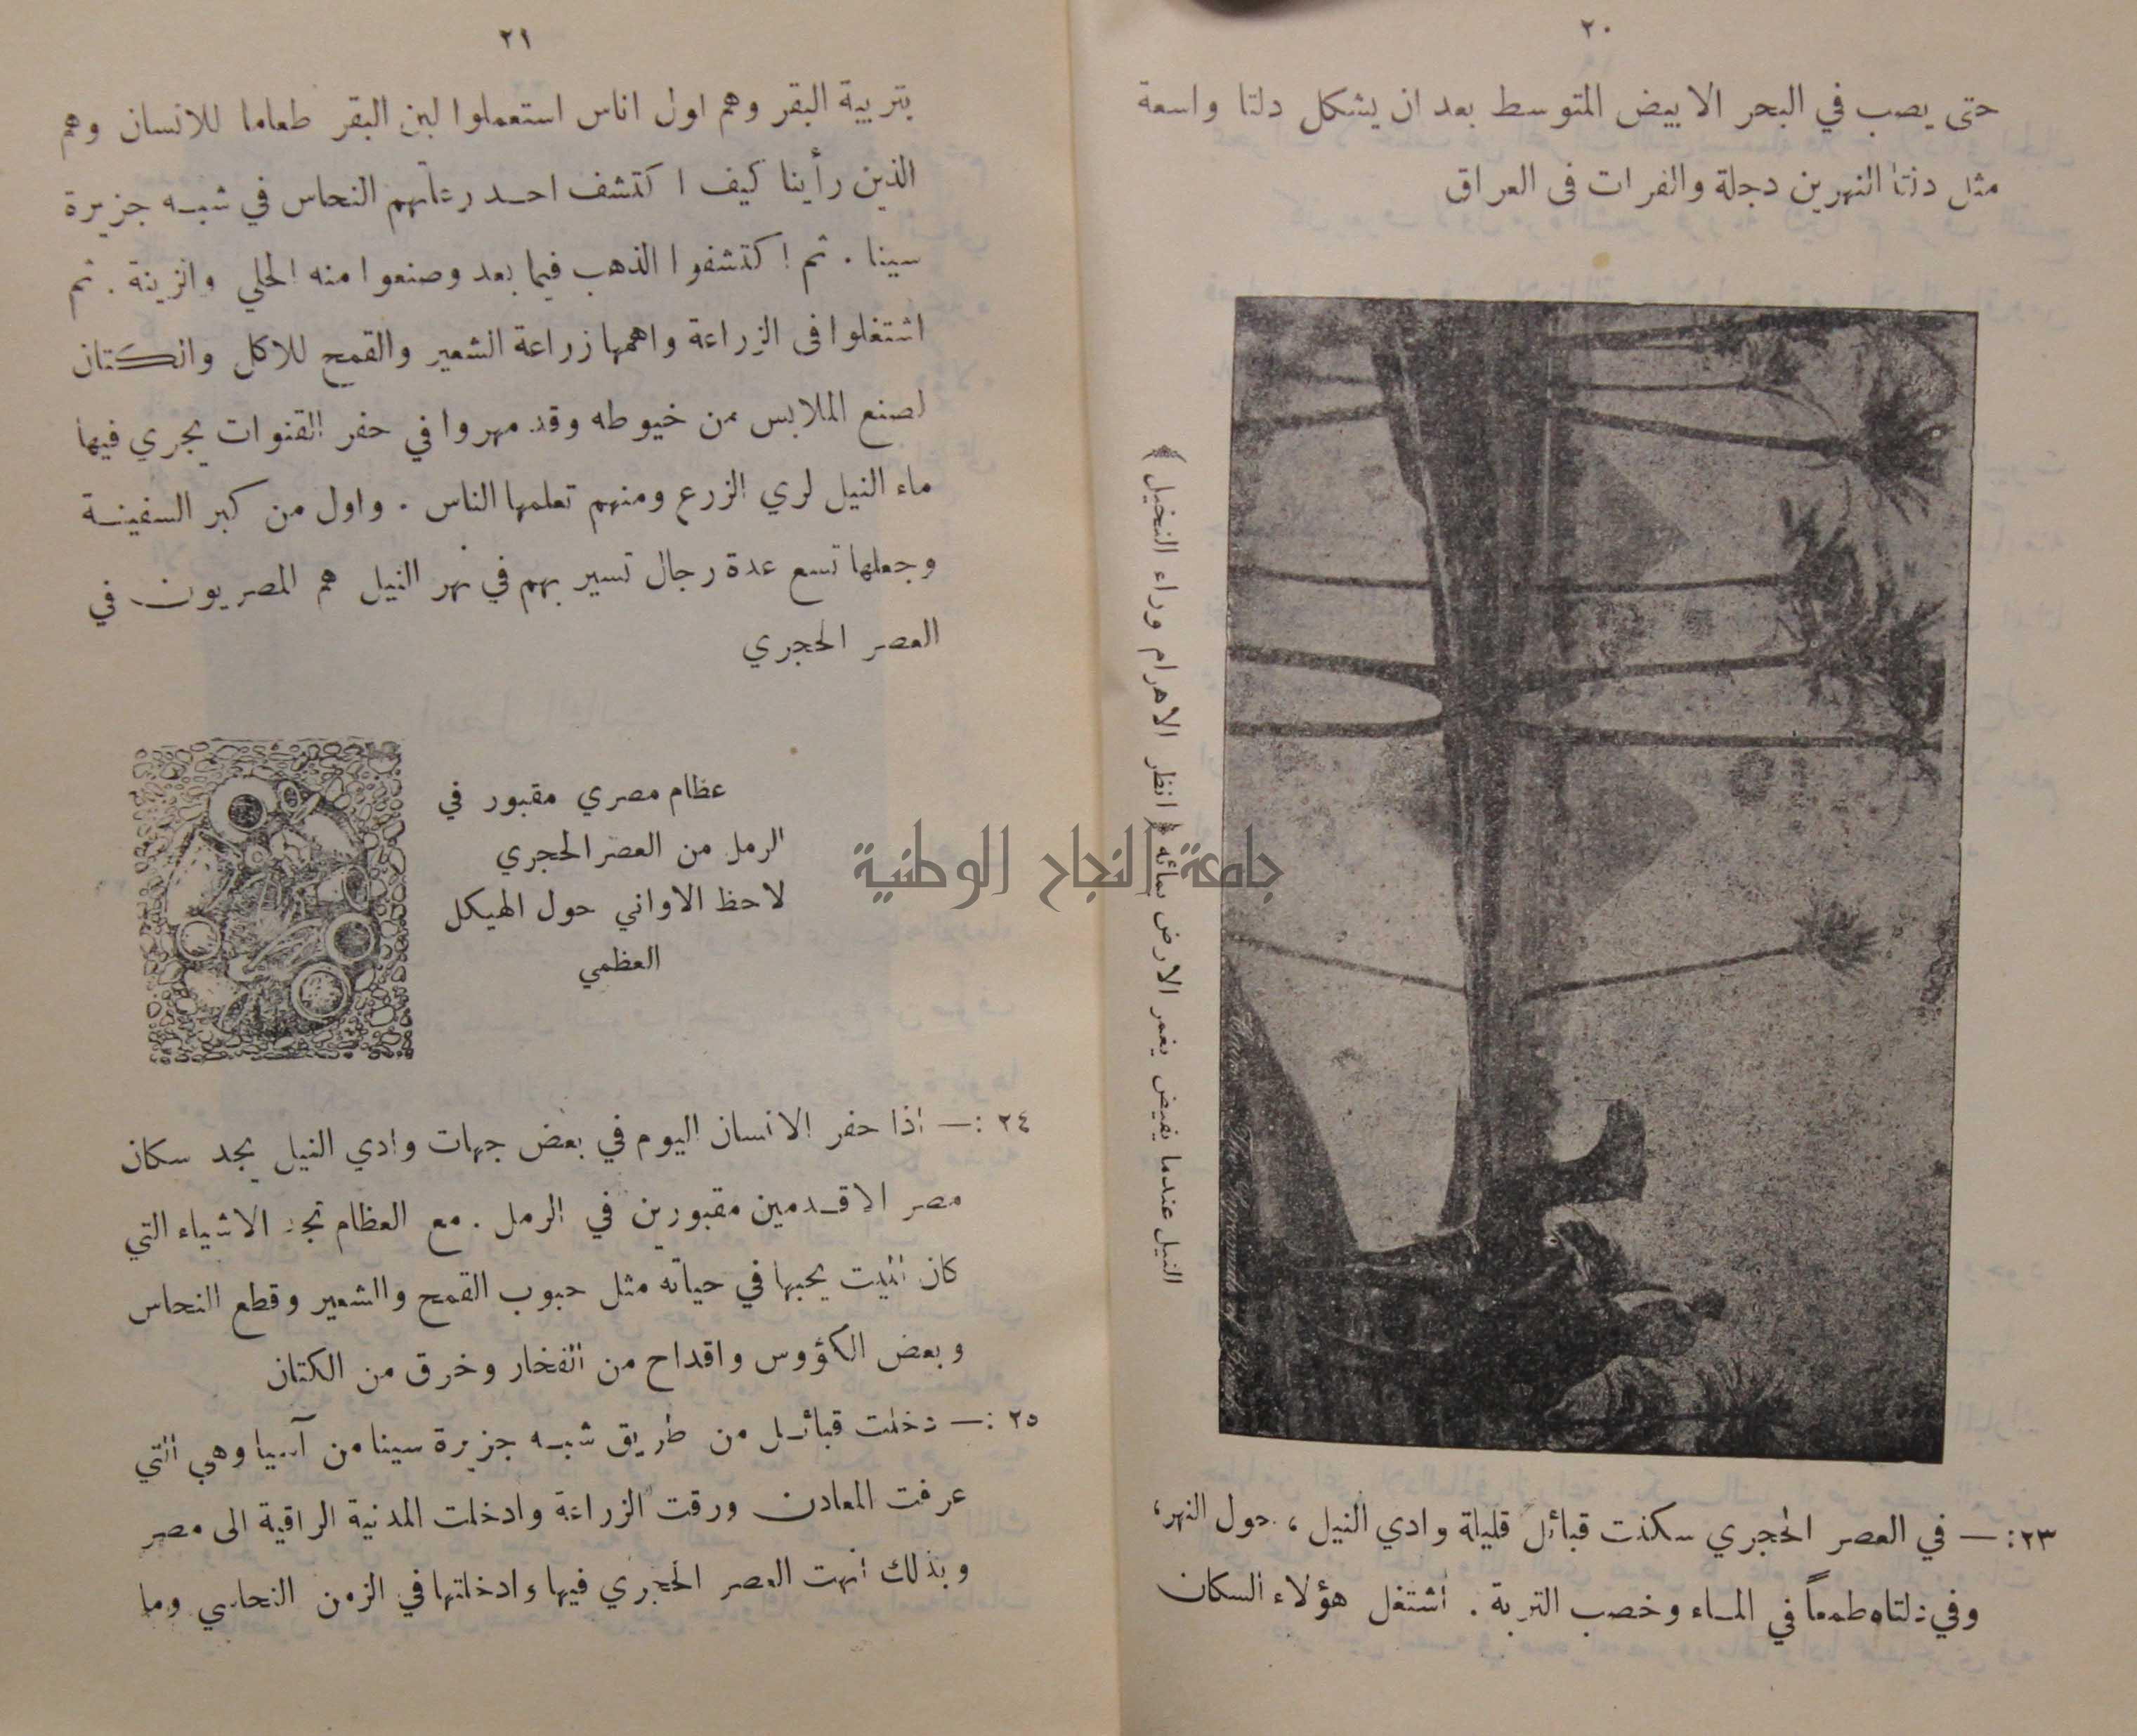 ٢٠
حتى يصب في البحر الابيض المتوسط بعد ان يشكل دلتا واسعة
مثل دلتا النهرين دجلة والفرات في العراق
النيل عندما يفيض يغمر الارض بمائه ﴿ انظر الاهرام وراء النخيل ﴾
٢٣ :— في العصر الحجري سكنت قبائل قليلة وادي النيل ، حول النهر ،
وفي دلتاه طمعاً في الماء وخصب التربة . اشتغل هؤلاء السكان
٢١
بتربية البقر وهم اول اناس استعملوا لبن البقر طعاما للانسان وهم
الذين رأينا كيف اكتشف احد رعاتهم النحاس في شبه جزيرة
سينا . ثم اكتشفوا الذهب فيما بعد وصنعوا منه الحلي والزينة . ثم
اشتغلوا في الزراعة واهمها زراعة الشعير والقمح للاكل والكتان
لصنع الملابس من خيوطه وقد مهروا في حفر القنوات يجري فيها
ماء النيل لري الزرع ومنهم تعلمها الناس . واول من كبر السفينة
وجعلها تسع عدة رجال تسير بهم في نهر النيل هم المصريون في
العصر الحجري
عظام مصري مقبور في
الرمل من العصر الحجري
لاحظ الاواني حول الهيكل
العظمي
٢٤ :— اذا حفر الانسان اليوم في بعض جهات وادي النيل يجد سكان
مصر الاقدمين مقبورين في الرمل . مع العظام تجد الاشياء التي
كان الميت يحبها في حياته مثل حبوب القمح والشعير وقطع النحاس
وبعض الكؤوس واقداح من الفخار وخرق من الكتان
٢٥ :— دخلت قبائل من طريق شبه جزيرة سينا من آسيا وهي التي
عرفت المعادن ورقت الزراعة وادخلت المدنية الراقية الى مصر
وبذلك انهت العصر الحجري فيها وادخلتها في الزمن النحاسي وما
جامعة النجاح الوطنية